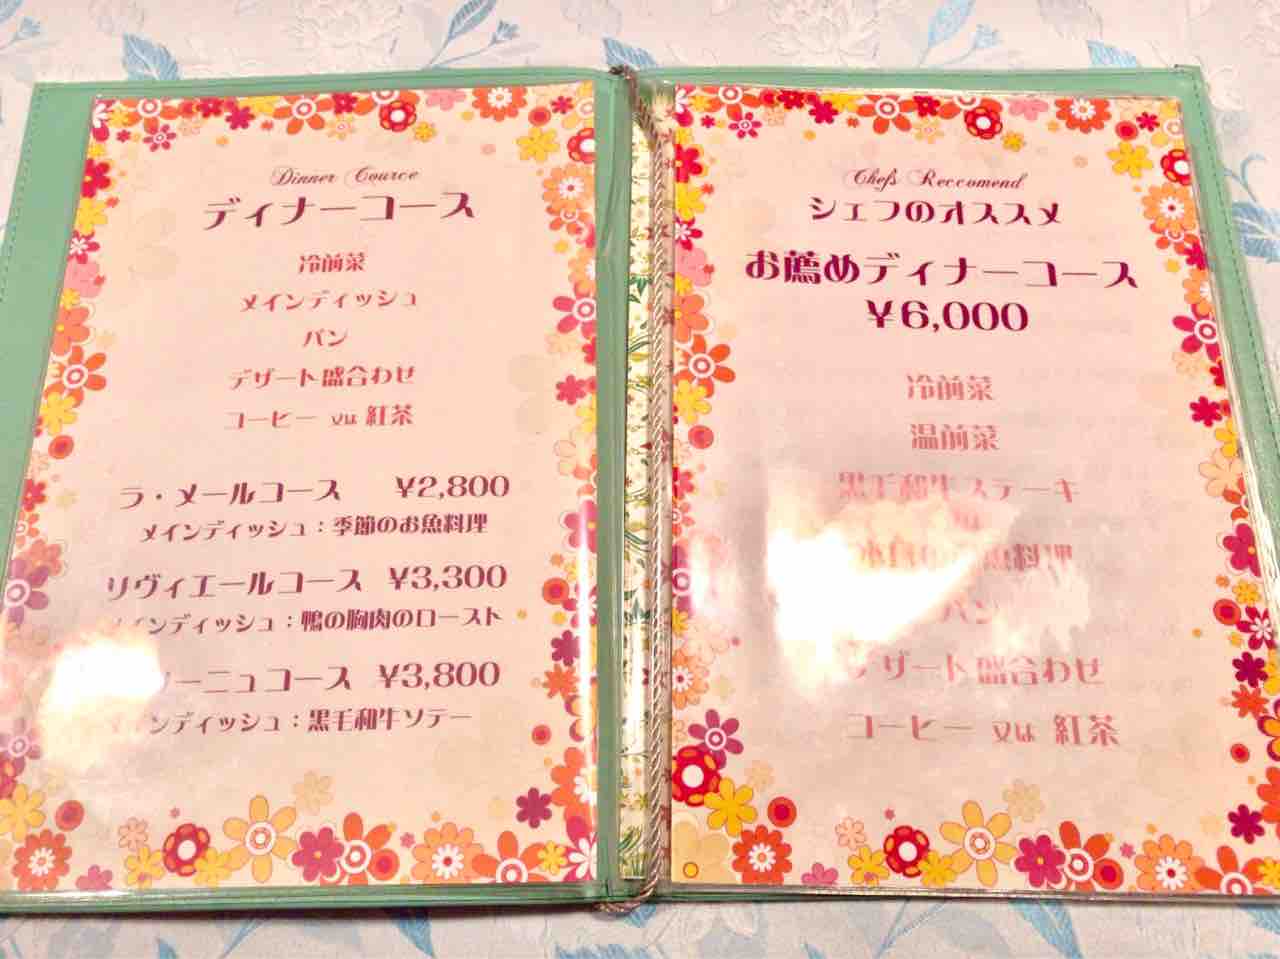 Dinner Cource
ディナーコース
冷前菜
メインディッシュ
パン
デザート盛合わせ
コーヒー 又は 紅茶
ラ・メールコース ¥2,800
メインディッシュ：季節のお魚料理
リヴィエールコース ¥3,300
メインディッシュ：鴨の胸肉のロースト
ーニュコース ¥3,800
インディッシュ：黒毛和牛ソテー
Chefs Reccomend
シェフのオススメ
お薦めディナーコース
¥6,000
冷前菜
温前菜
黒毛和牛ステーキ
魚料理
パン
デザート盛合わせ
コーヒー 又は 紅茶